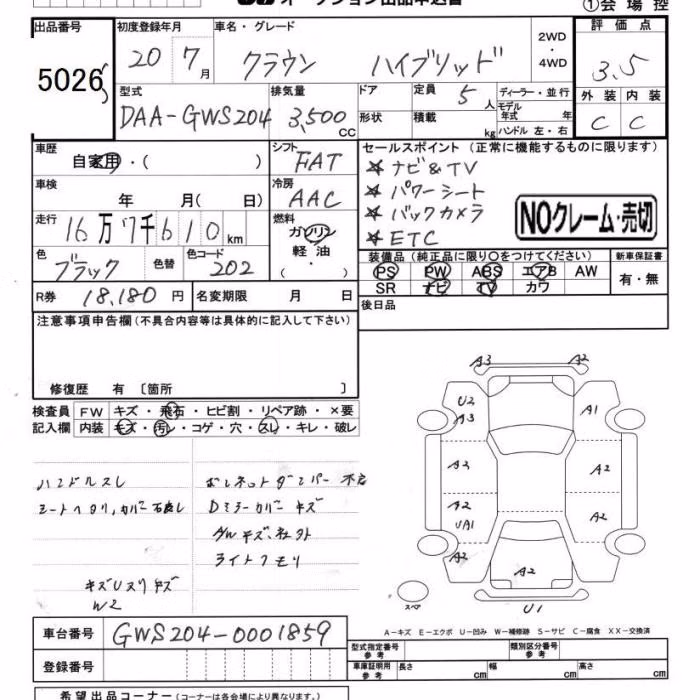 ①会場控
出品番号
5026
初度登録年月
20 7月
車名・グレード
クラウン ハイブリッド
2WD
・
4WD
評価点
3.5
型式
DAA-GWS204
排気量
3,500 CC
ドア
形状
定員 5人
積載 kg
ディーラー・並行
モデル
年式 年
ハンドル 左・右
外装 内装
C C
車歴
自家用・( )
シフト
FAT
車検
年 月( 日)
冷房
AAC
走行
16万7千610km
燃料
ガソリン
・
軽油
・
( )
色
ブラック
色替
色コード
202
R券 18,180円
名変期限 月 日
セールスポイント(正常に機能するものに限ります)
☆ ナビ&TV
☆ パワーシート
☆ バックカメラ
☆ ETC
NOクレーム・売切
装備品(純正品に限り〇をつけてください)
PS PW ABS エアB AW
SR ナビ TV カワ
新車保証書
有・無
後日品
注意事項申告欄(不具合内容等は具体的に記入して下さい)
修復歴 有 〔箇所 〕
検査員
記入欄
FW キズ・飛石・ヒビ割・リペア跡・×要
内装 キズ・汚レ・コゲ・穴・スレ・キレ・破レ
ハンドルスレ
シートヘタリ,カバー
ボンネットダンパー
Dミラーカバーキズ
AWキズ、社外
ライトクモリ
キズUヌリキズ
W2
A3 A2
U2
A3
A1
A3
A2
A2
UA1
A2
A2
A2
スペア
U1
A-キズ E-エクボ U-凹み W-補修跡 S-サビ C-腐食 XX-交換済
車台番号 GWS204-0001859
登録番号
型式指定番号
参考
類別区分番号
参考
車庫証明用
参考
長さ cm
幅 cm
高さ cm
希望出品コーナー(コーナーは各会場により異なります。)